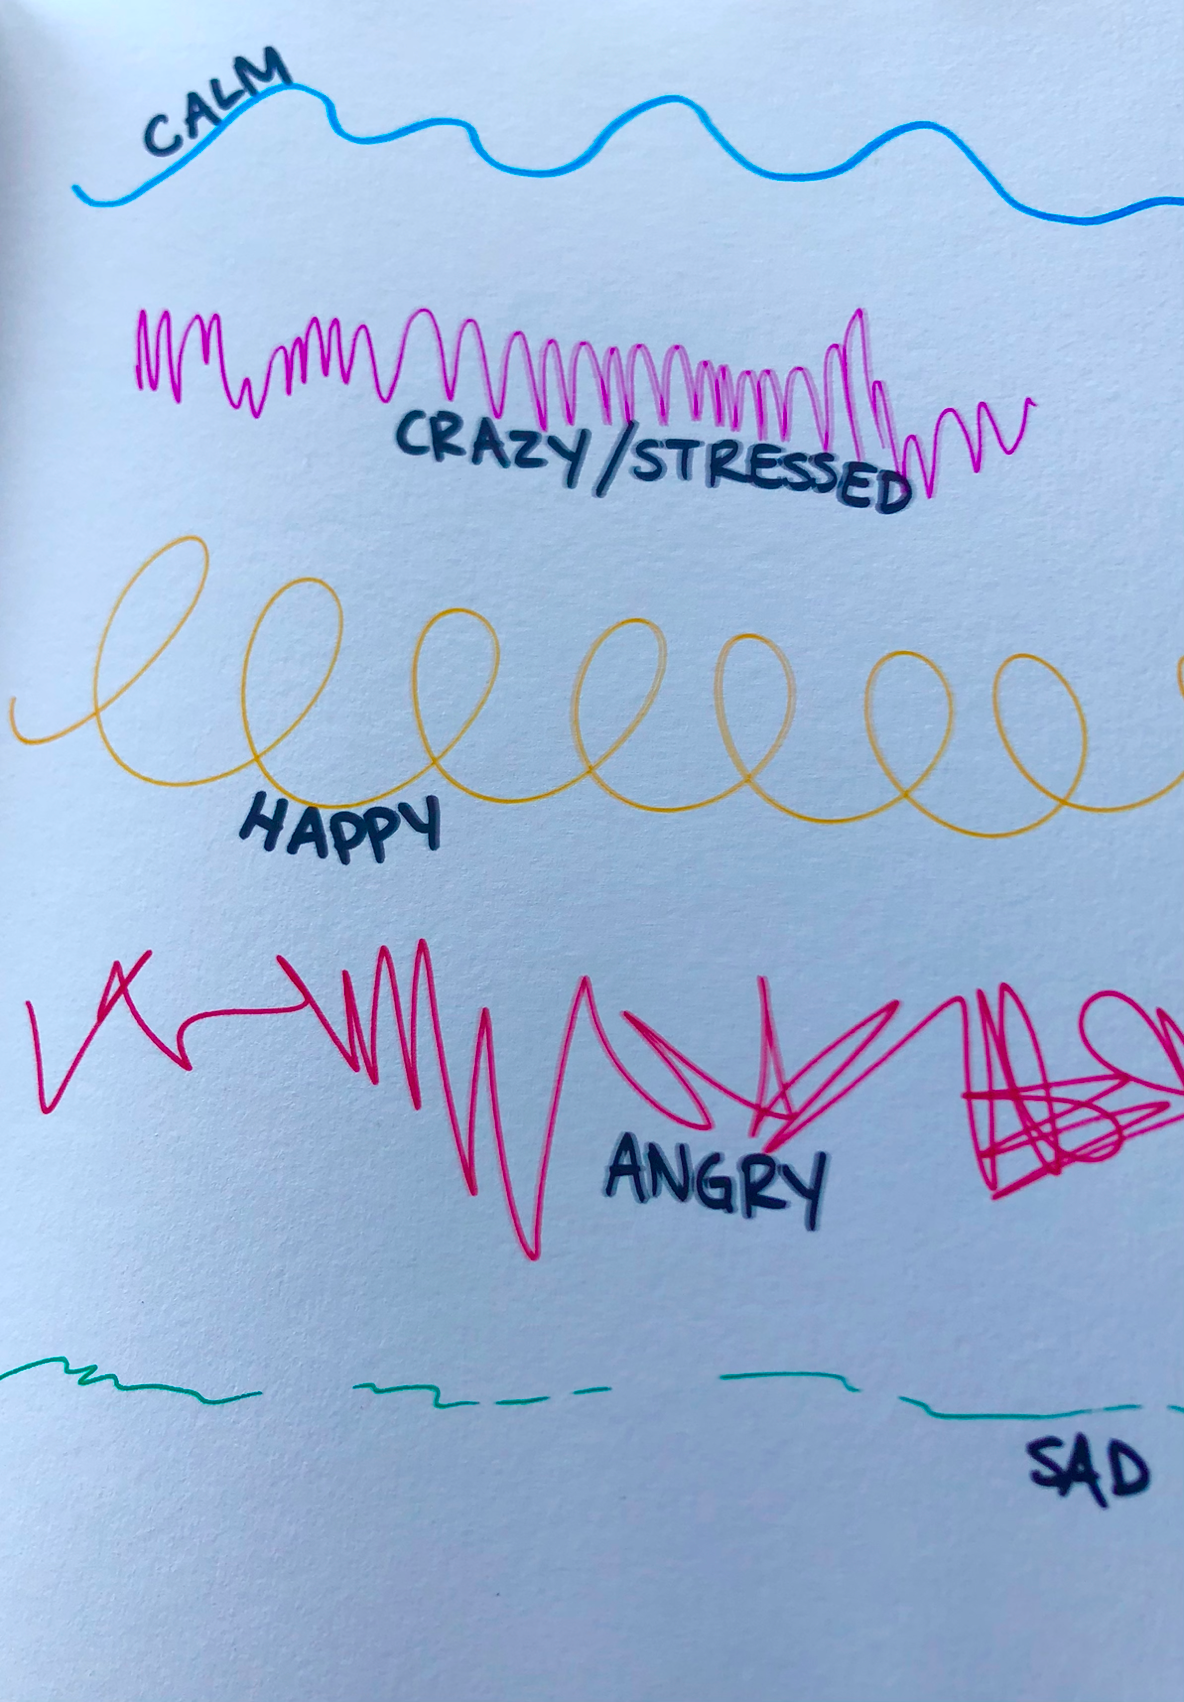 CALM
CRAZY/STRESSED
HAPPY
ANGRY
SAD